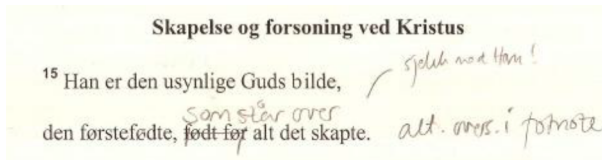 Skapelse og forsoning ved Kristus
sjekk mot Ham!
15 Han er den usynlige Guds bilde,
som står over
den førstefødte, født før alt det skapte. alt. overs. i fotnote